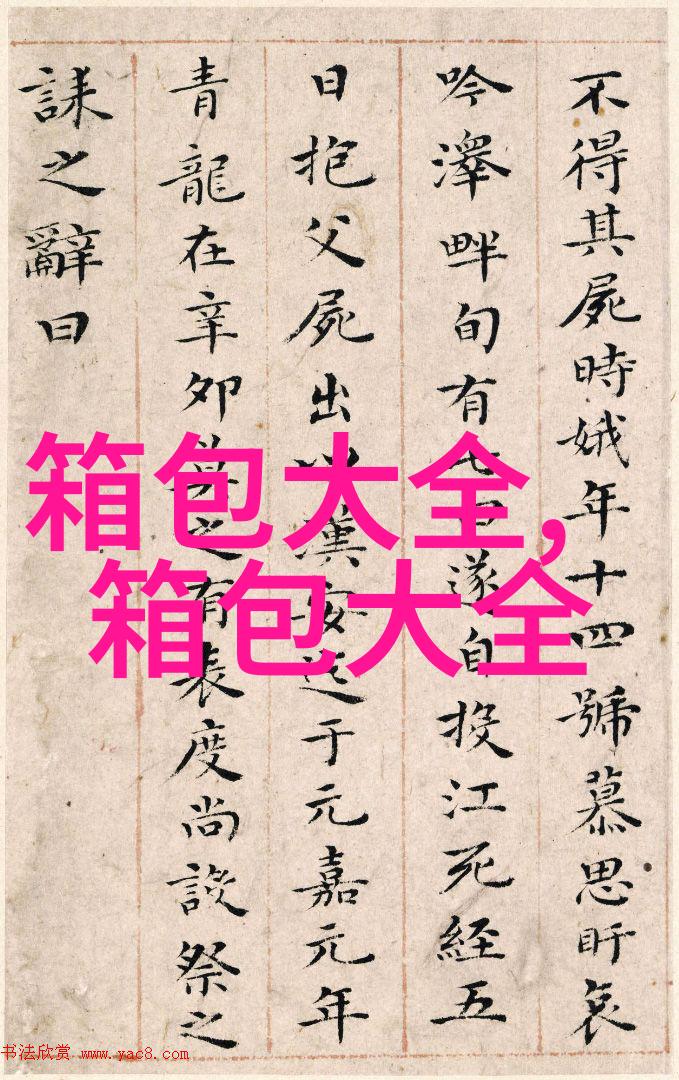 不得其屍時娥年十四號慕思盱哀
吟澤畔旬有七日遂自投江死經五
日抱父屍出以漢安迄于元嘉元年
青龍在辛卯莫之有表度尚設祭之
誄之辭曰
箱包大全,
箱包大全
书法欣赏 www.yac8.com